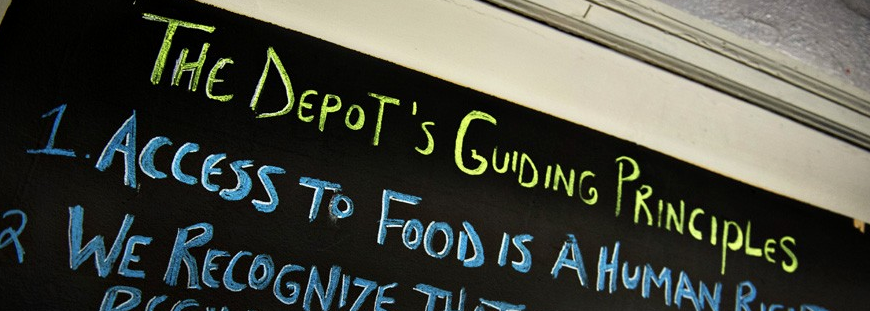 The Depot's Guiding Principles
1. Access to Food is a Human
2 We Recognize That